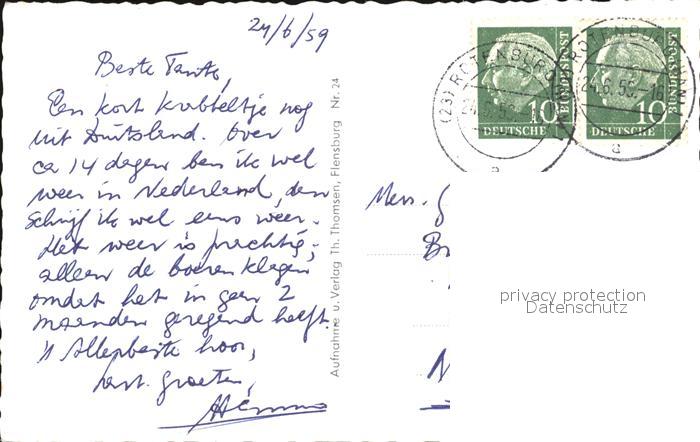 24/6/59
Beste Tante,
Een kort krabbeltje nog
uit Duitsland. Over
ca 14 dagen ben ik wel
weer in Nederland, dan
schrijf ik wel eens weer.
Het weer is prachtig;
alleen de boeren klagen
omdat het in geen 2
maanden geregend heeft.
'n Allerbeste hoor,
hart. groeten,
Aufnahme u. Verlag Th. Thomsen, Flensburg Nr. 24
10
DEUTSCHE
BUNDESPOST
10
DEUTSCHE
BUNDESPOST
(23) ROTENBURG
24.6.59
ROTENBURG (HANN)
24.6.59.-16
a
Mevr.
Br
N
privacy protection
Datenschutz